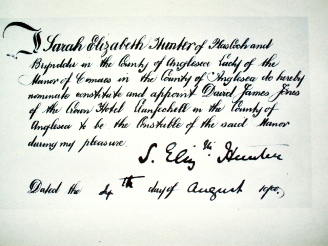 I Sarah Elizabeth Hunter of Plascoch and
Brynddu in the County of Anglesea Lady of the
Manor of Cemaes in the County of Anglesea do hereby
nominate constitute and appoint David James Jones
of the Hotel in the County of
Anglesea to be the Constable of the said Manor
during my pleasure
S. Eliz th Hunter
Dated the 4th day of August